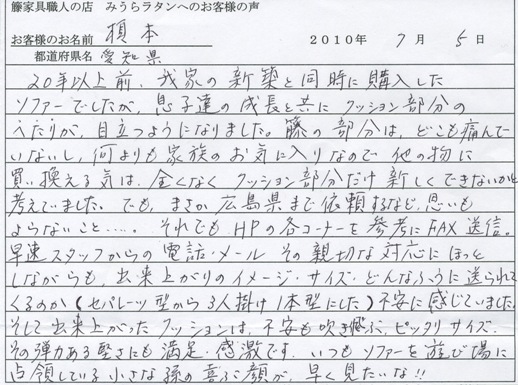 籐家具職人の店　みうらラタンへのお客様の声
お客様のお名前　榎本　2010年　7月　5日
都道府県名　愛知県
20年以上前、我家の新築と同時に購入した
ソファーでしたが、息子達の成長と共にクッション部分の
へたりが、目立つようになりました。籐の部分は、どこも痛んで
いないし、何よりも家族のお気に入りなので他の物に
買い換える気は、全くなくクッション部分だけ新しくできないかと
考えていました。でも、まさか広島県まで依頼するなど、思いも
よらないこと‥‥。それでもHPの各コーナーを参考にFAX送信。
早速スタッフからの電話・メールその親切な対応にほっと
しながらも、出来上がりのイメージ・サイズ・どんなふうに送られて
くるのか(セパレーツ型から3人掛け1本型にした)不安に感じていました。
そして出来上がったクッションは、不安も吹き飛ぶ、ピッタリサイズ。
その弾力ある堅さにも満足・感激です。いつもソファーを遊び場に
占領している小さな孫の喜ぶ顔が、早く見たいな!!